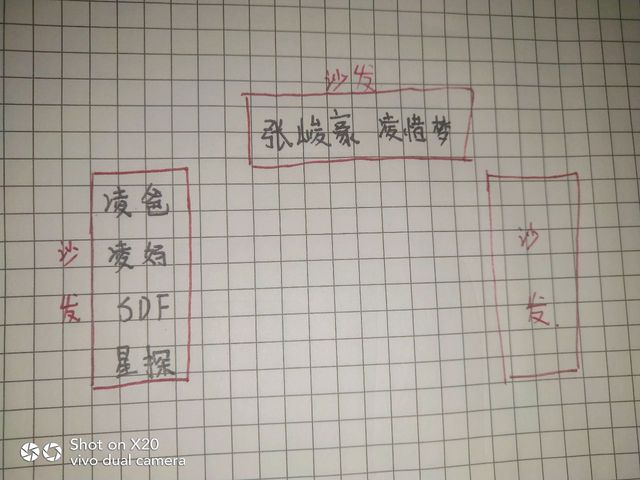 沙发
张峻豪 凌惜梦
凌爸
凌妈
SDF
星探
沙
发
沙
发
Shot on X20
vivo dual camera